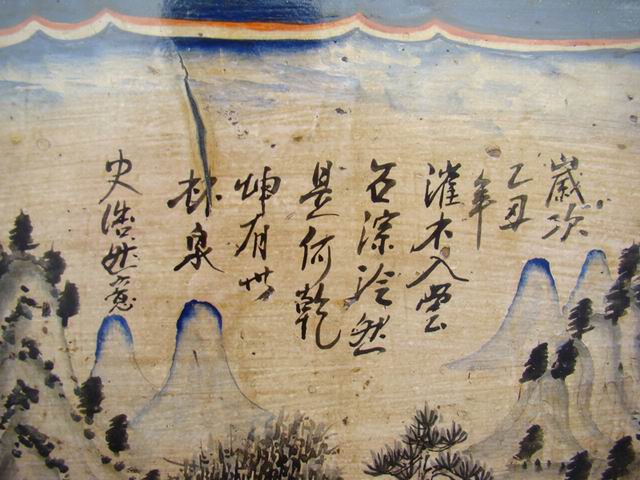 歲次
乙丑
年
灌木入雲
石淙泠然
是何乾
坤有此
林泉
史浩然意